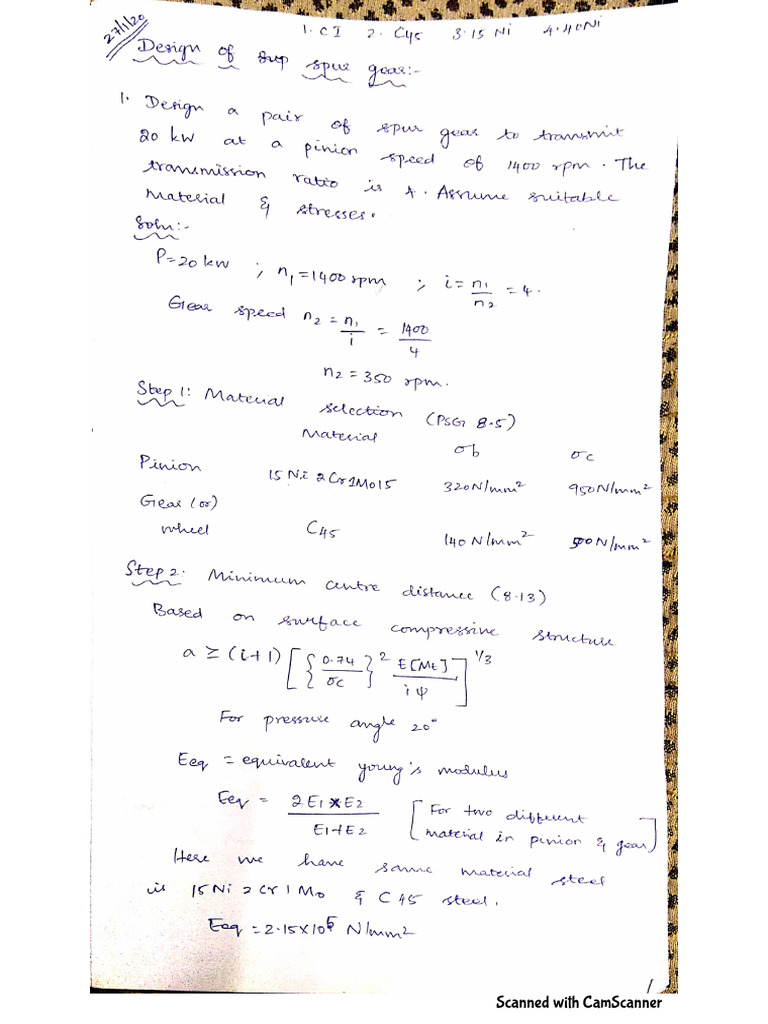 27/1/20
1. CI 2. C45 3. 15 Ni 4. 40Ni
Design of sup spur gear:-
1. Design a pair of spur gear to transmit
20 kw at a pinion speed of 1400 rpm. The
transmission ratio is 4. Assume suitable
Material & stresses.
Soln:-
P=20 kw ; n1=1400 rpm ; i = n1/n2 = 4.
Gear speed n2 = n1/i = 1400/4
n2 = 350 rpm.
Step 1: Material selection (PSG 8.5)
Material σb σc
Pinion 15 Ni 2Cr1Mo15 320N/mm² 950N/mm²
Gear (or)
wheel C45 140 N/mm² 500N/mm²
Step 2: Minimum centre distance (8.13)
Based on surface compressive structure
a ≥ (i+1) [{0.74/σc}² E[Mt]/iψ]^1/3
For pressure angle 20°
Eeq = equivalent young's modulus
Eeq = 2E1*E2/E1+E2 [For two different
material in pinion & gear]
Here we have same material steel
is 15Ni 2Cr1Mo & C45 steel.
Eeq = 2.15x10⁵ N/mm²
1
Scanned with CamScanner